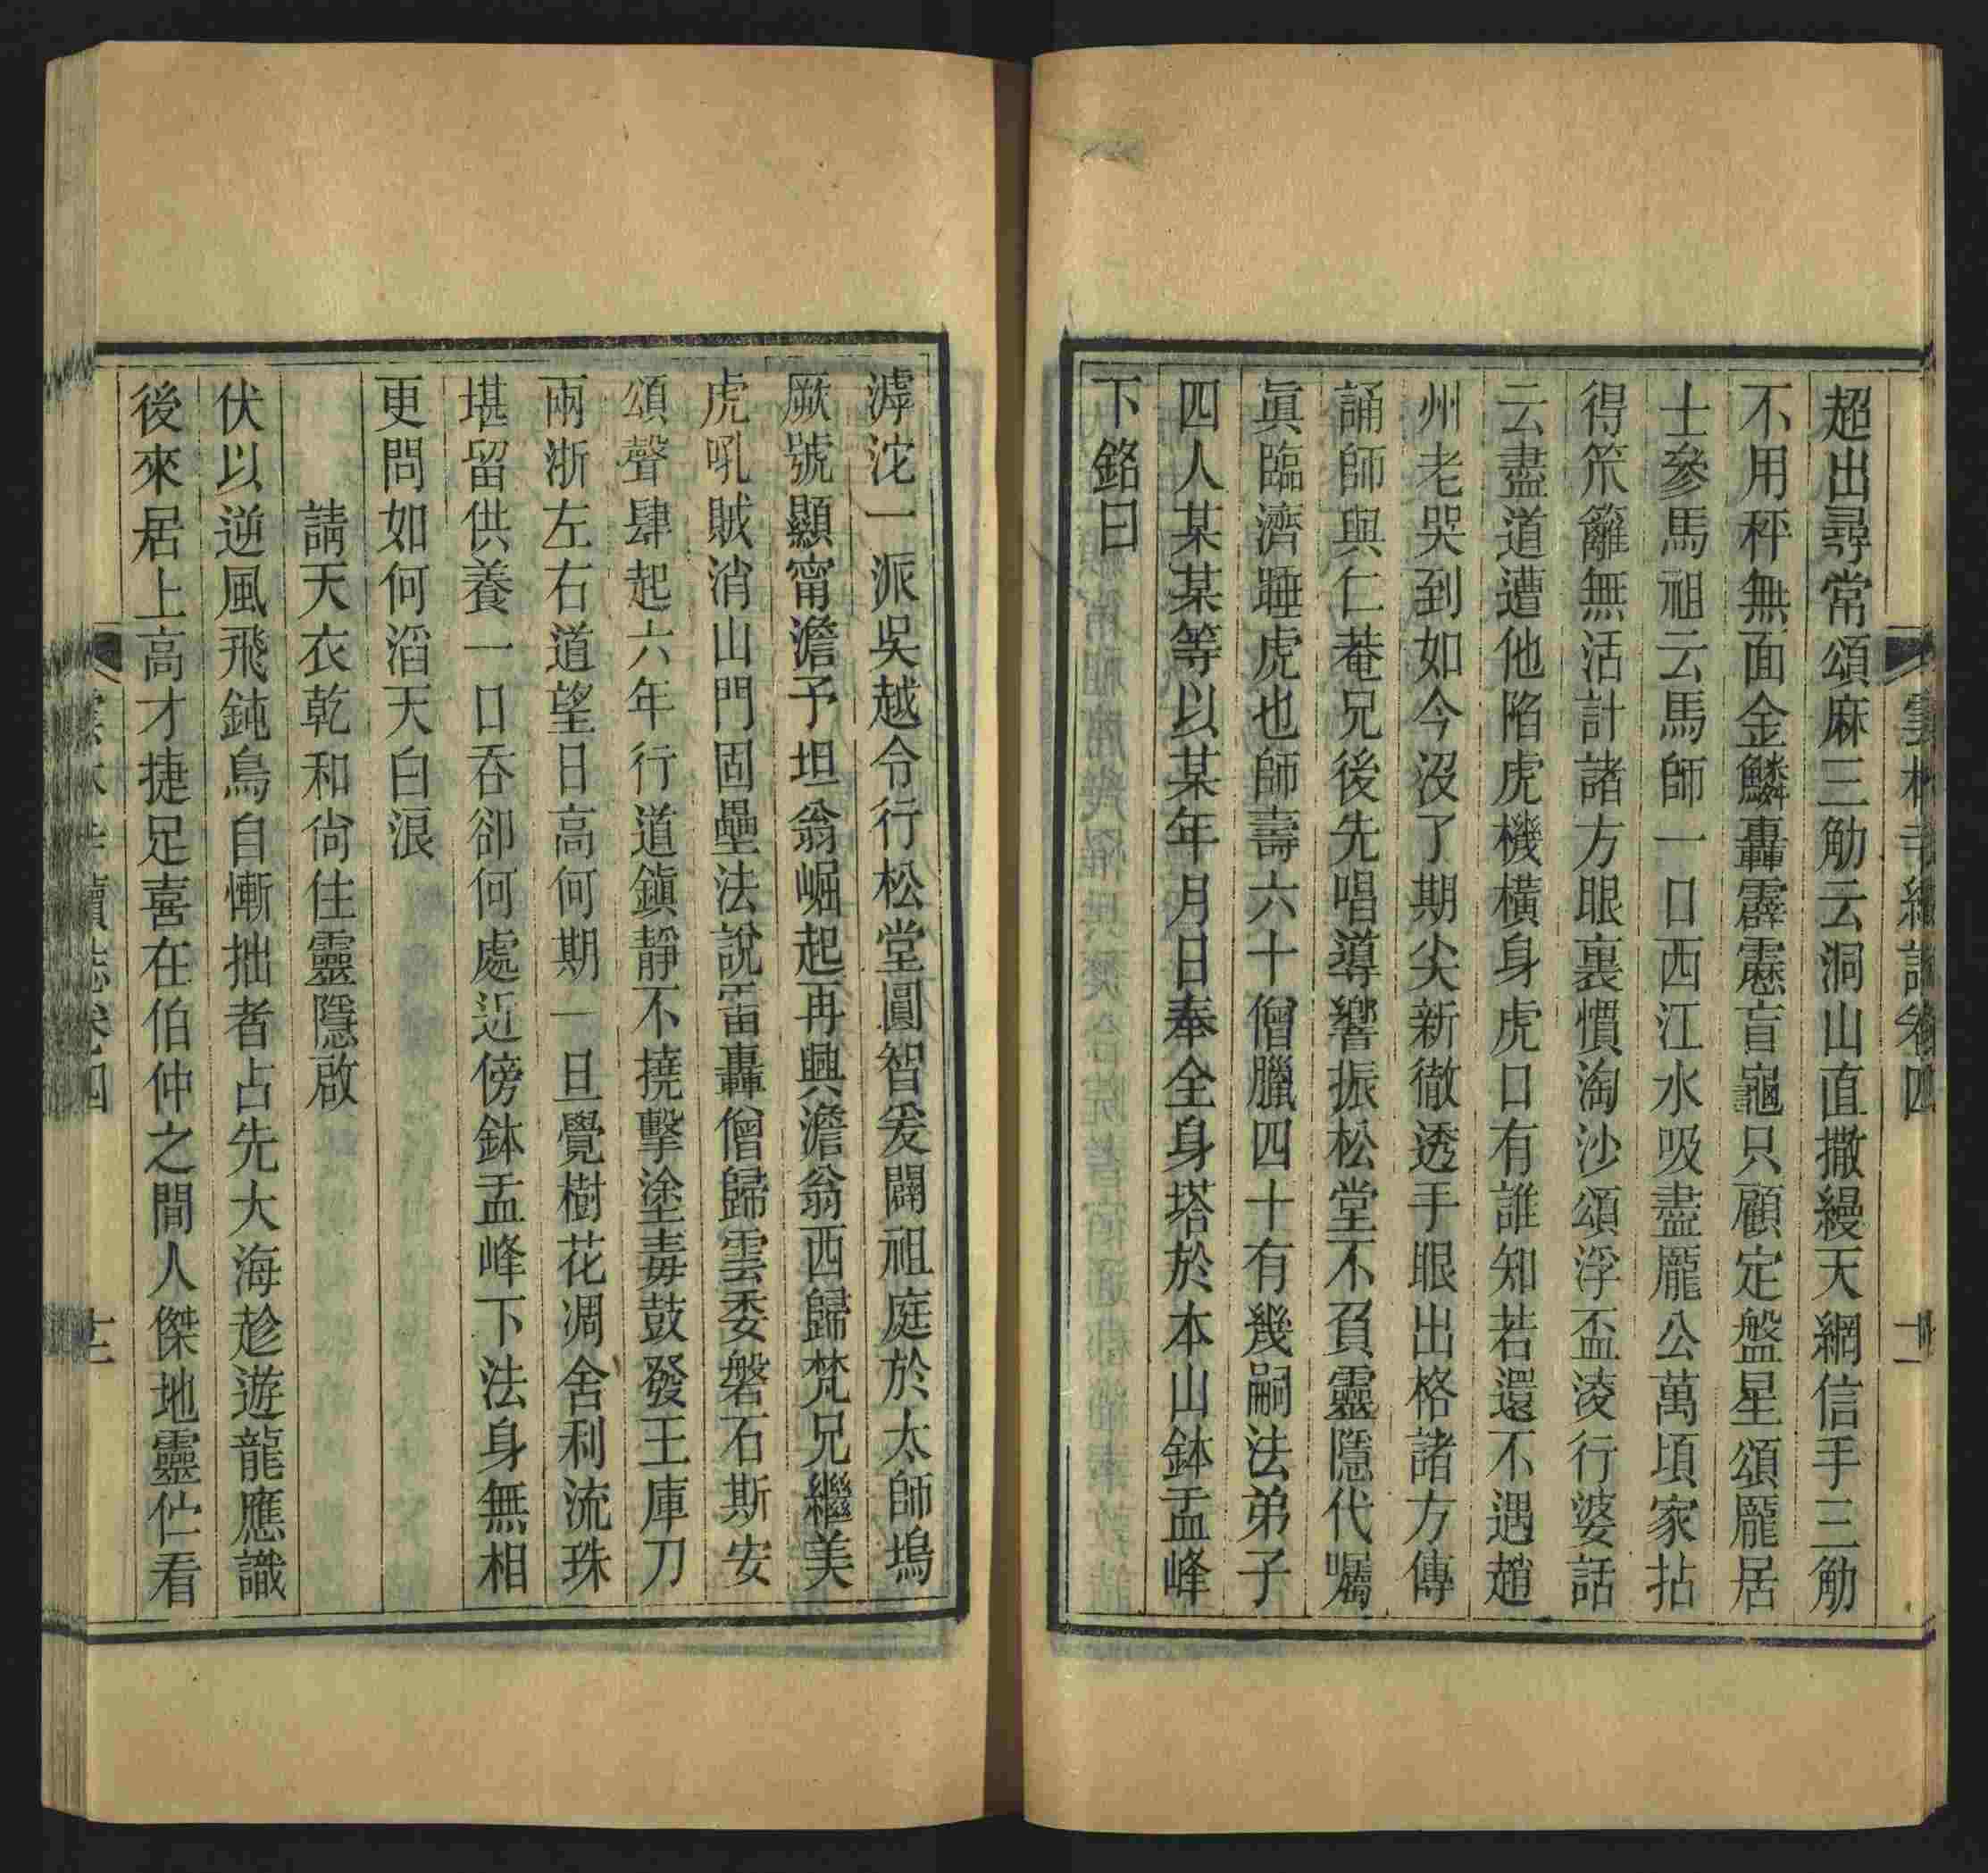 雲林寺續誌卷四
十二
超出尋常頌麻三觔云洞山直撒縵天網信手三觔
不用秤無面金鱗轟霹靂盲龜只顧定盤星頌龐居
士參馬祖云馬師一口西江水吸盡龐公萬頃家拈
得笊籬無活計諸方眼裏慣淘沙頌浮盃凌行婆話
云盡道遭他陷虎機橫身虎口有誰知若還不遇趙
州老哭到如今沒了期尖新徹透手眼出格諸方傳
誦師與仁菴兄後先唱導響振松堂不負靈隱代囑
眞臨濟睡虎也師壽六十僧臘四十有幾嗣法弟子
四人某某等以某年月日奉全身塔於本山鉢盂峰
下銘曰
滹沱一派吳越令行松堂圓智爰闢祖庭於太師塢
厥號顯甯澹予坦翁崛起再興澹翁西歸梵兄繼美
虎吼賊消山門固壘法說雷轟僧歸雲委磐石斯安
頌聲肆起六年行道鎮靜不撓擊塗毒鼓發王庫刀
兩浙左右道望日高何期一旦覺樹花凋舍利流珠
堪留供養一口吞卻何處近傍鉢盂峰下法身無相
更問如何滔天白浪
請天衣乾和尙住靈隱啟
伏以逆風飛鈍鳥自慚拙者占先大海趁遊龍應識
後來居上高才捷足喜在伯仲之間人傑地靈伫看
雲林寺續誌卷四
十二